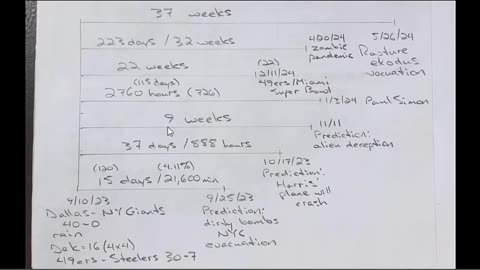 37 weeks
223 days / 32 weeks
4/20/24
zombie
pandemic
5/26/24
Rapture
exodus
vacuation
22 weeks
(115 days)
2760 hours (726)
(22)
12/11/24
49ers/Miami
Super Bowl
11/3/24 Paul Simon
9 weeks
11/11
Prediction:
alien deception
37 days / 888 hours
(120) (4.11%)
15 days / 21,600 min
10/17/23
Prediction:
Harris'
plane will
crash
9/10/23
Dallas - NY Giants
40-0
rain
Dak = 16 (4x4)
49ers - Steelers 30-7
9/25/23
Prediction:
dirty bombs
NYC
evacuation